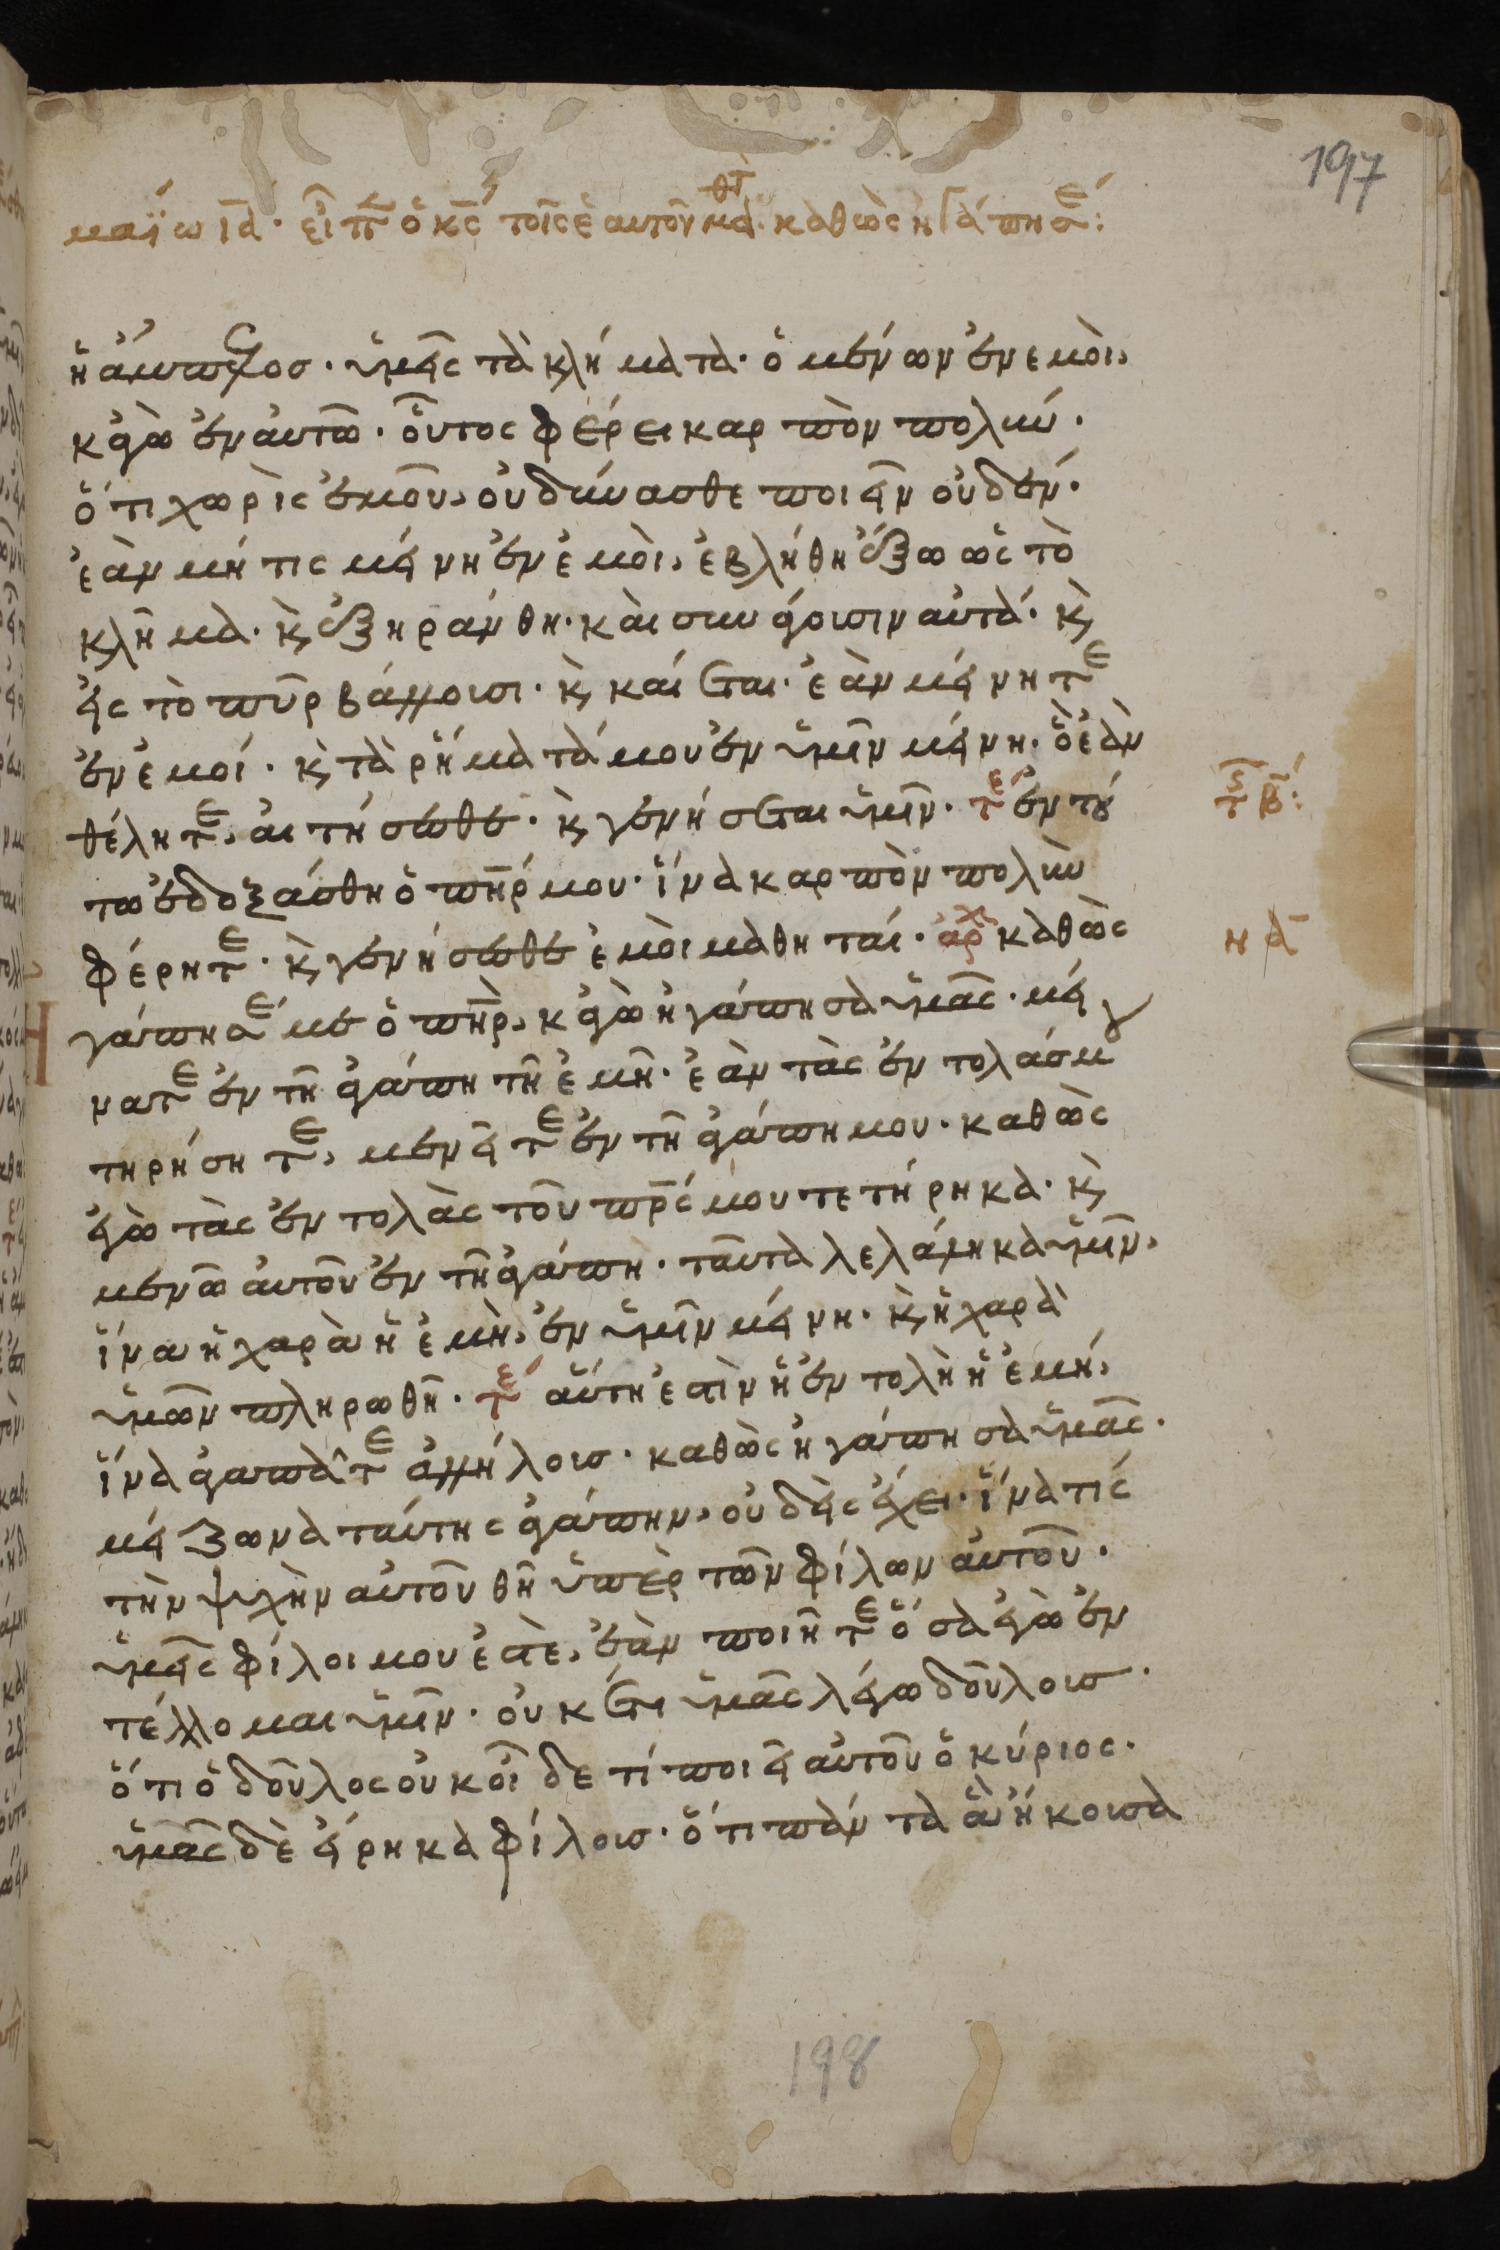 197
μαΐω ια· εἶπεν ὁ κς τοῖς ἑαυτοῦ μαθητ· καθὼς ἠγάπησε:
ἡ ἄμπελος· ὑμεῖς τὰ κλήματα· ὁ μένων ἐν ἐμοὶ,
κἀγὼ ἐν αὐτῶ· οὗτος φέρει καρπὸν πολύν·
ὅτι χωρὶς ἐμοῦ, οὐ δύνασθε ποιεῖν οὐδέν·
ἐὰν μή τις μείνη ἐν ἐμοὶ, ἐβλήθη ἔξω ὡς τὸ
κλῆμα· κ ἐξηράνθη· καὶ συνάγουσιν αὐτά· κ
εἰς τὸ πῦρ βάλλουσι· κ καίεται· ἐὰν μείνητε
ἐν ἐμοί· κ τὰ ῥήματά μου ἐν ὑμῖν μείνη· ὃ ἐὰν
θέλητε, αἰτήσασθε· κ γενήσεται ὑμῖν· τε ἐν τού
τω ἐδοξάσθη ὁ πηρ μου· ἵνα καρπὸν πολὺν
φέρητε· κ γενήσεσθε ἐμοὶ μαθηταί· αρχ καθὼς
Ἠγάπησέ με ὁ πηρ, κἀγὼ ἠγάπησα ὑμᾶς· μεί
νατε ἐν τῆ ἀγάπη τῆ ἐμῆ· ἐὰν τὰς ἐντολάς μ
τηρήσητε, μενεῖτε ἐν τῆ ἀγάπη μου· καθὼς
ἐγὼ τὰς ἐντολὰς τοῦ πρς μου τετήρηκα· κ
μένω αὐτοῦ ἐν τῆ ἀγάπη· ταῦτα λελάληκα ὑμῖν,
ἵνα ἡ χαρὰ ἡ ἐμὴ, ἐν ὑμῖν μείνη· κ ἡ χαρὰ
ὑμῶν πληρωθῆ· τε αὕτη ἐστὶν ἡ ἐντολὴ ἡ ἐμή,
ἵνα ἀγαπᾶτε ἀλλήλους· καθὼς ἠγάπησα ὑμᾶς·
μείζωνα ταύτης ἀγάπην, οὐδεὶς ἔχει· ἵνα τίς
τὴν ψυχὴν αὐτοῦ θῆ ὑπὲρ τῶν φίλων αὐτοῦ·
ὑμεῖς φίλοι μου ἐστὲ, ἐὰν ποιῆτε ὅσα ἐγὼ ἐν
τέλλομαι ὑμῖν· οὐκέτι ὑμᾶς λέγω δούλους·
ὅτι ὁ δοῦλος οὐκ οἶδε τί ποιεῖ αὐτοῦ ὁ κύριος·
ὑμᾶς δὲ εἴρηκα φίλους· ὅτι πάντα ἃ ἤκουσα
τς β:
η α
198